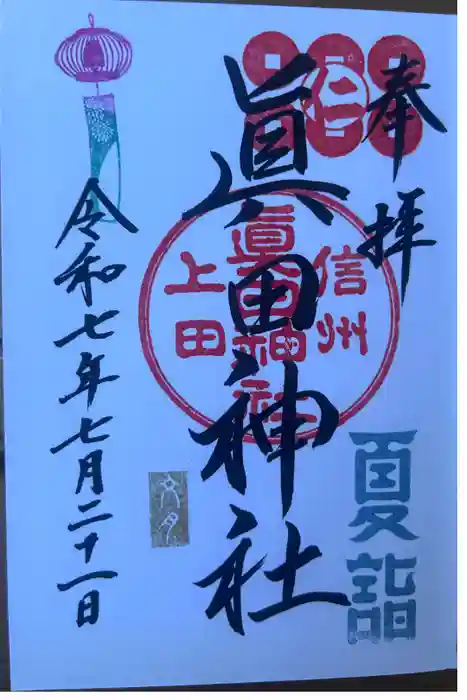 奉拝
夏詣
眞田神社
信州
眞田神社
上田
文月
令和七年七月二十一日